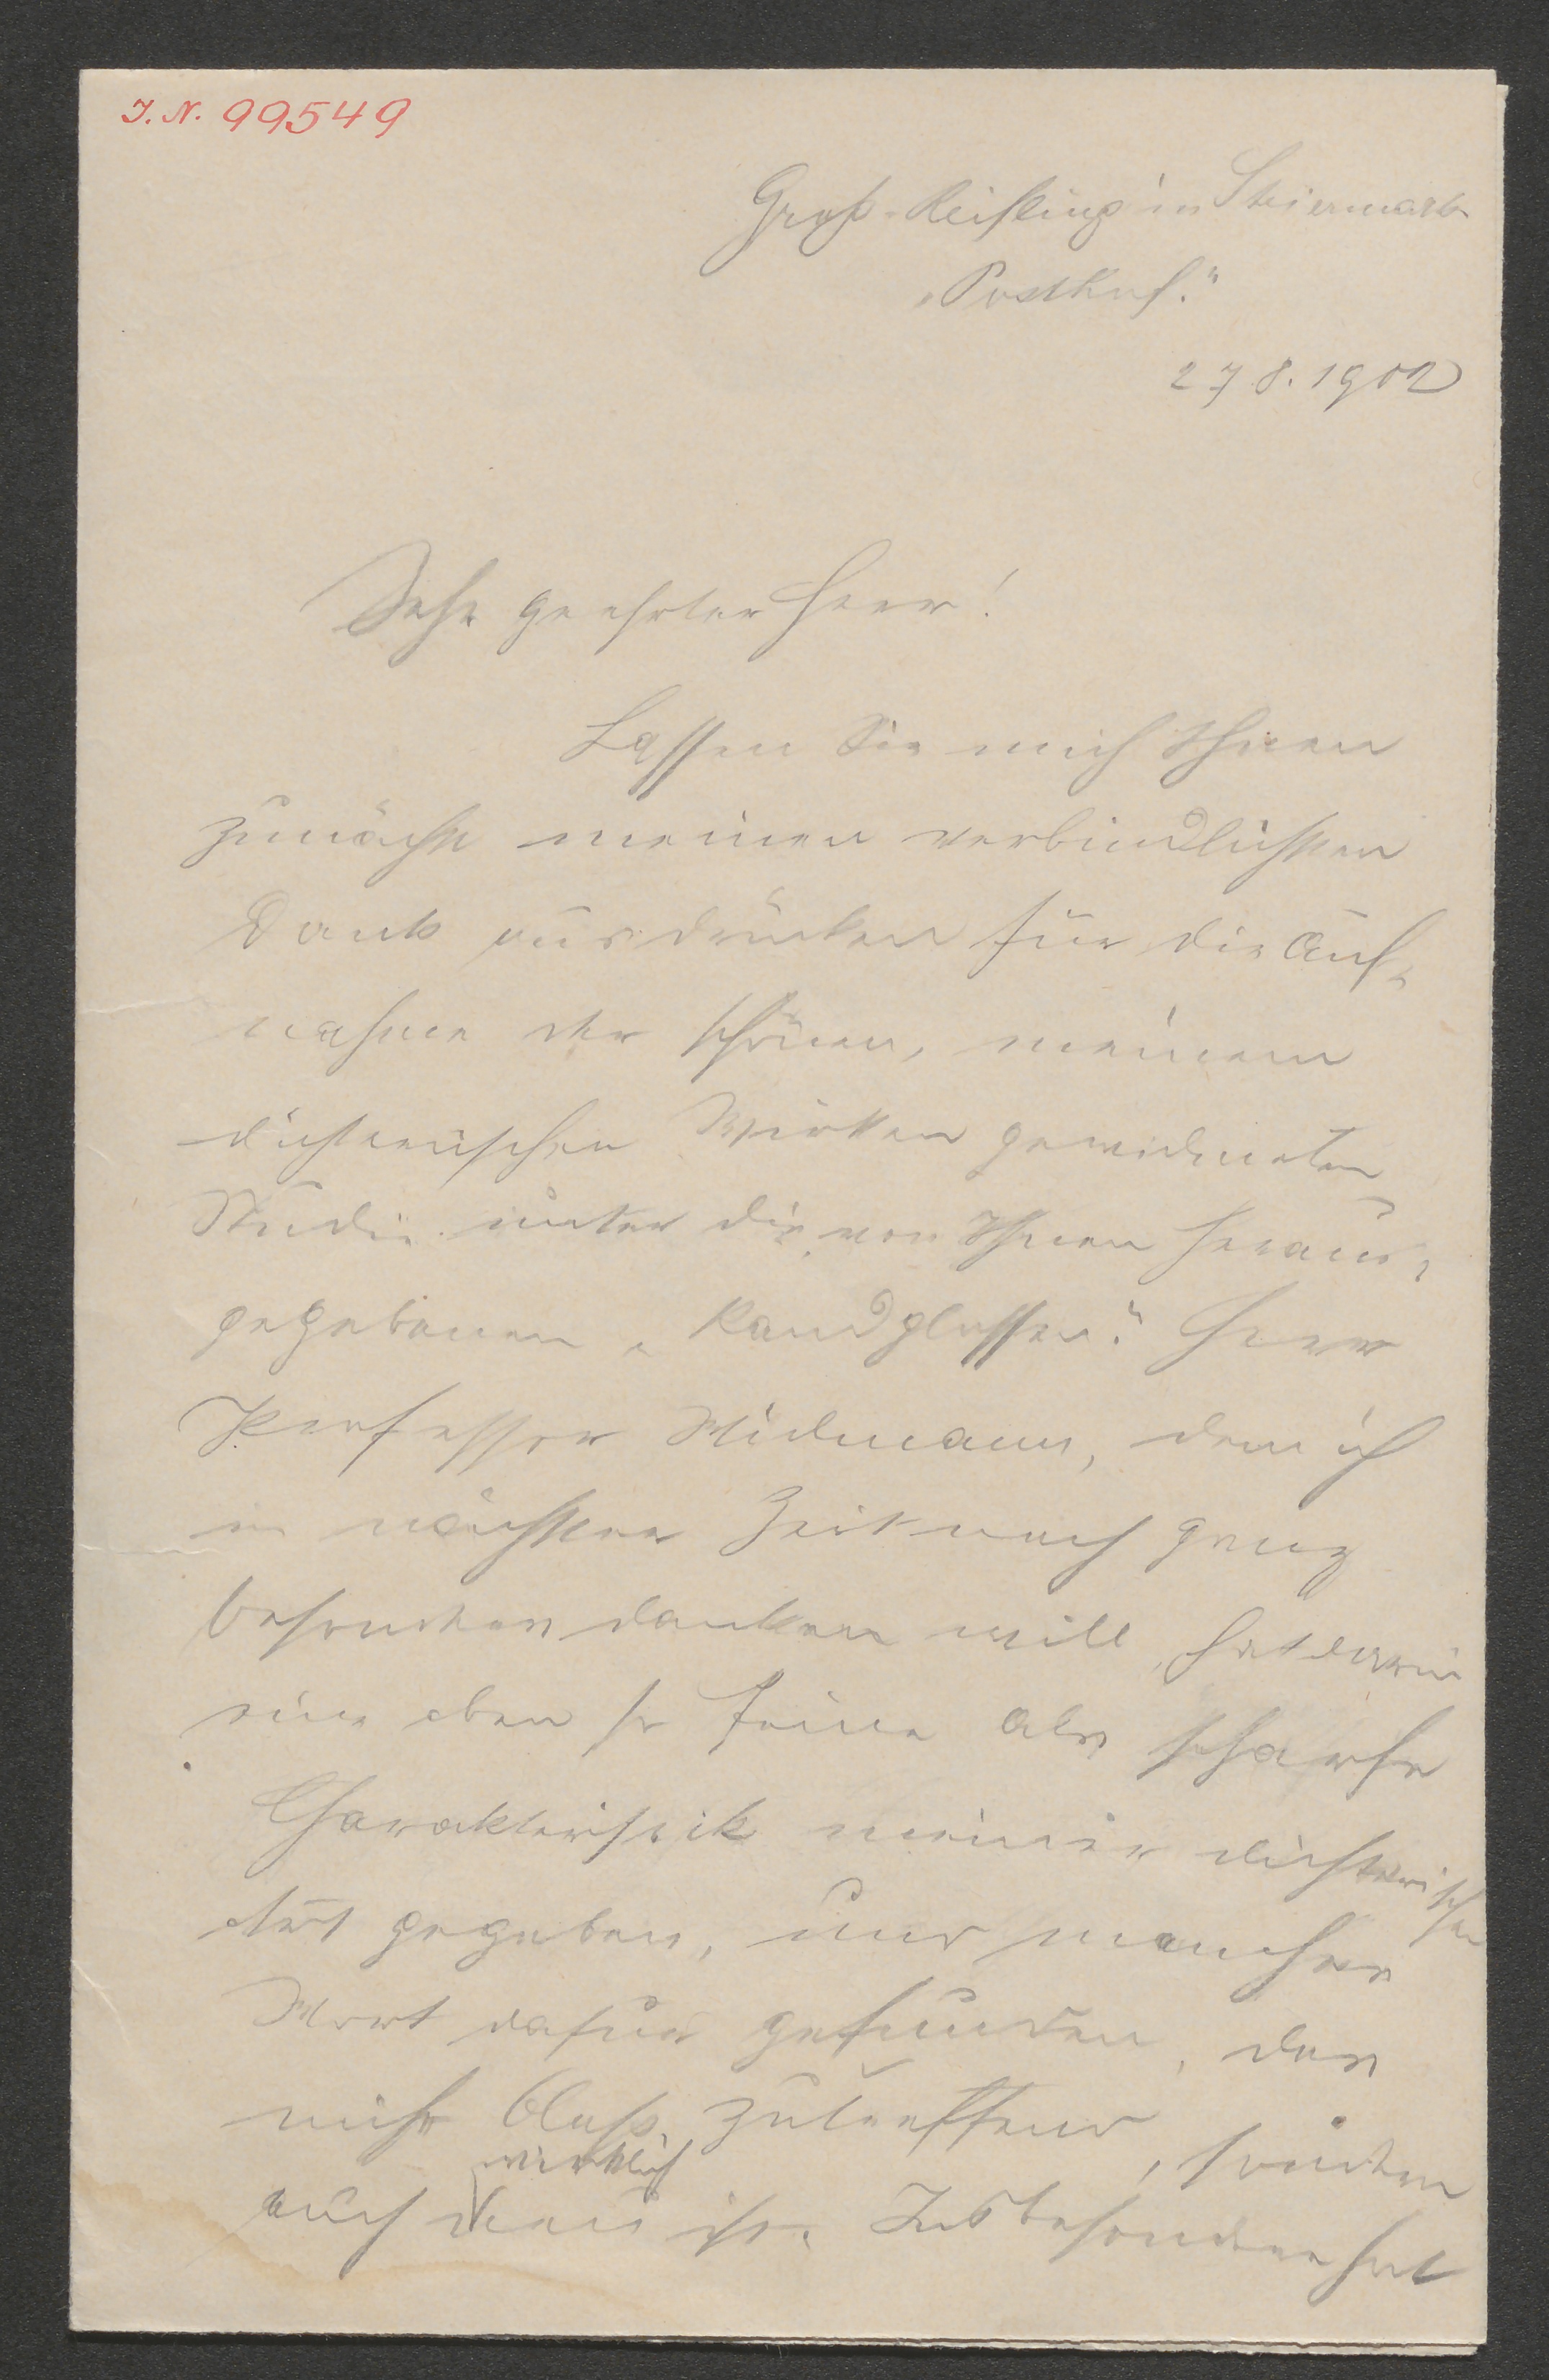 I. N. 99549
Groß-Reifling in Steiermark
„Posthof."
27 8. 1902
Sehr geehrter Herr!
Lassen Sie mich Ihnen
zunächst meinen verbindlichsten
Dank ausdrücken für die Auf-
nahme der schönen, meinem
dichterischen Wirken gewidmeten
Studie unter die von Ihnen heraus-
gegebenen „Randglossen." Herr
Professor Widmann, dem ich
in nächster Zeit noch ganz
besonders danken will, hat darin
eine eben so feine als scharfe
Charakteristik meiner dichterischen
Art gegeben, und manches
Wort dafür gefunden, das
nicht bloß zutreffend, sondern
wirklich
auch neu ist. Insbesondere hat